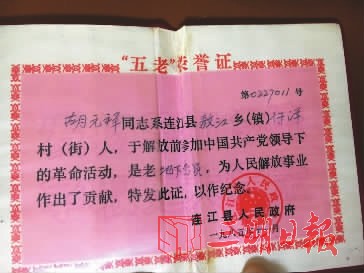 “五老”荣誉证
第0227011号
胡元祥同志系连江县敖江乡(镇)
村(街)人,于解放前参加中国共产党领导下
的革命活动,是老地下党员,为人民解放事业
作出了贡献,特发此证,以作纪念。
连江县人民政府
一九八五年 月
日报